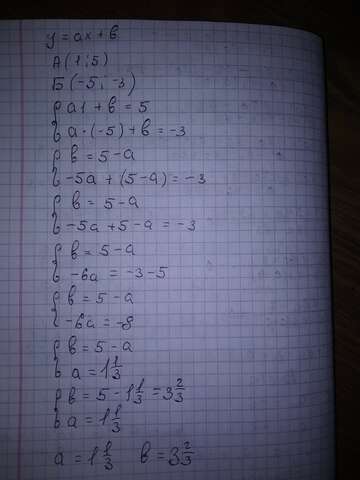 y = ax + в
А(1; 5)
Б(-5; -3)
{ a1 + в = 5
{ a·(-5) + в = -3
{ в = 5 - a
{ -5a + (5 - a) = -3
{ в = 5 - a
{ -5a + 5 - a = -3
{ в = 5 - a
{ -6a = -3 - 5
{ в = 5 - a
{ -6a = -8
{ в = 5 - a
{ a = 1 1/3
{ в = 5 - 1 1/3 = 3 2/3
{ a = 1 1/3
a = 1 1/3 в = 3 2/3